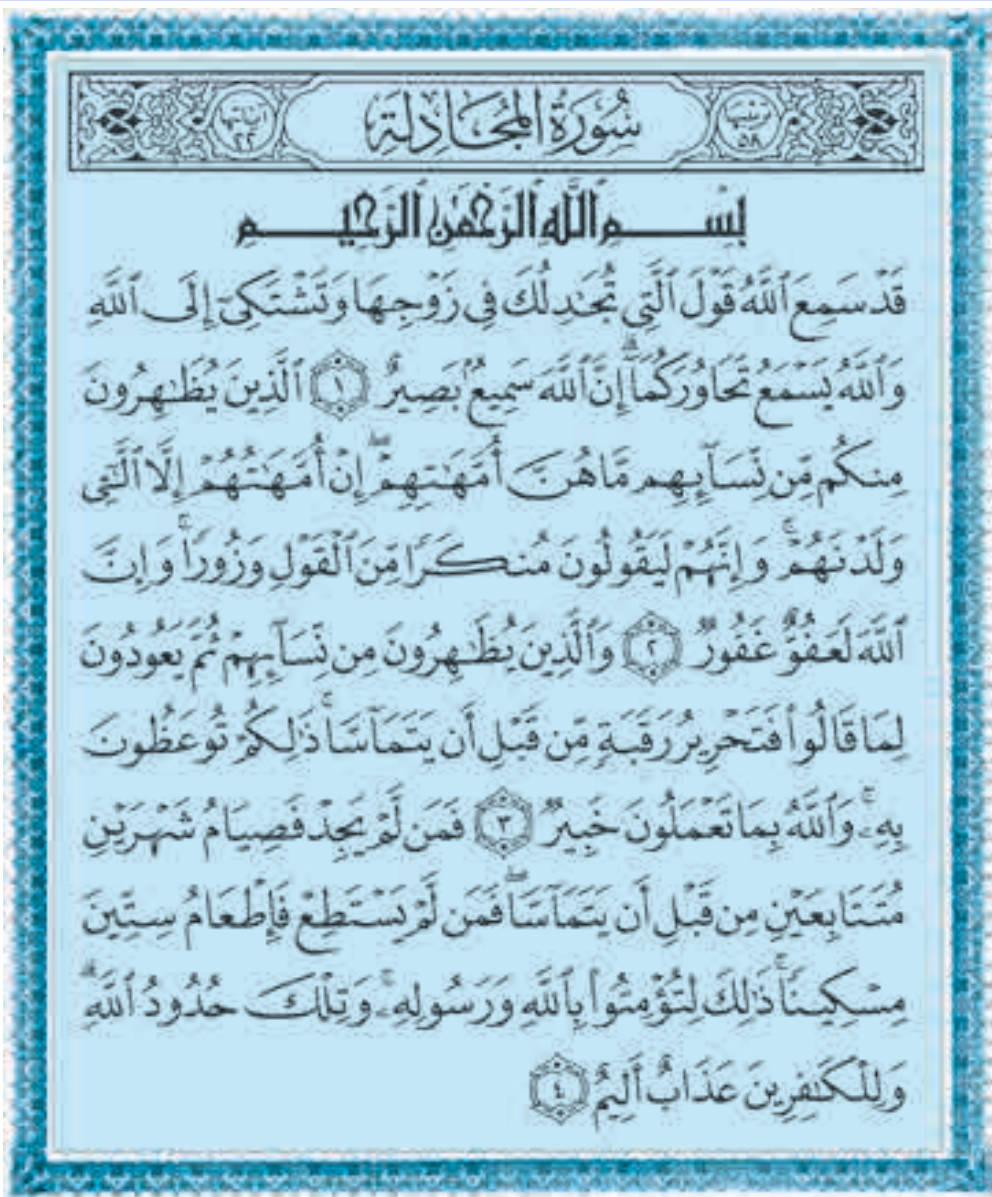 ترتيبها ٥٨ سُورَةُ الْمُجَادِلَةِ آياتها ٢٢
بِسْمِ ٱللَّهِ ٱلرَّحْمَٰنِ ٱلرَّحِيمِ
قَدْ سَمِعَ ٱللَّهُ قَوْلَ ٱلَّتِى تُجَٰدِلُكَ فِى زَوْجِهَا وَتَشْتَكِىٓ إِلَى ٱللَّهِ
وَٱللَّهُ يَسْمَعُ تَحَاوُرَكُمَآ ۚ إِنَّ ٱللَّهَ سَمِيعٌۢ بَصِيرٌ ۝١ ٱلَّذِينَ يُظَٰهِرُونَ
مِنكُم مِّن نِّسَآئِهِم مَّا هُنَّ أُمَّهَٰتِهِمْ ۖ إِنْ أُمَّهَٰتُهُمْ إِلَّا ٱلَّٰٓـِٔى
وَلَدْنَهُمْ ۚ وَإِنَّهُمْ لَيَقُولُونَ مُنكَرًا مِّنَ ٱلْقَوْلِ وَزُورًا ۚ وَإِنَّ
ٱللَّهَ لَعَفُوٌّ غَفُورٌ ۝٢ وَٱلَّذِينَ يُظَٰهِرُونَ مِن نِّسَآئِهِمْ ثُمَّ يَعُودُونَ
لِمَا قَالُوا۟ فَتَحْرِيرُ رَقَبَةٍ مِّن قَبْلِ أَن يَتَمَآسَّا ۚ ذَٰلِكُمْ تُوعَظُونَ
بِهِۦ ۚ وَٱللَّهُ بِمَا تَعْمَلُونَ خَبِيرٌ ۝٣ فَمَن لَّمْ يَجِدْ فَصِيَامُ شَهْرَيْنِ
مُتَتَابِعَيْنِ مِن قَبْلِ أَن يَتَمَآسَّا ۖ فَمَن لَّمْ يَسْتَطِعْ فَإِطْعَامُ سِتِّينَ
مِسْكِينًا ۚ ذَٰلِكَ لِتُؤْمِنُوا۟ بِٱللَّهِ وَرَسُولِهِۦ ۚ وَتِلْكَ حُدُودُ ٱللَّهِ ۗ
وَلِلْكَٰفِرِينَ عَذَابٌ أَلِيمٌ ۝٤